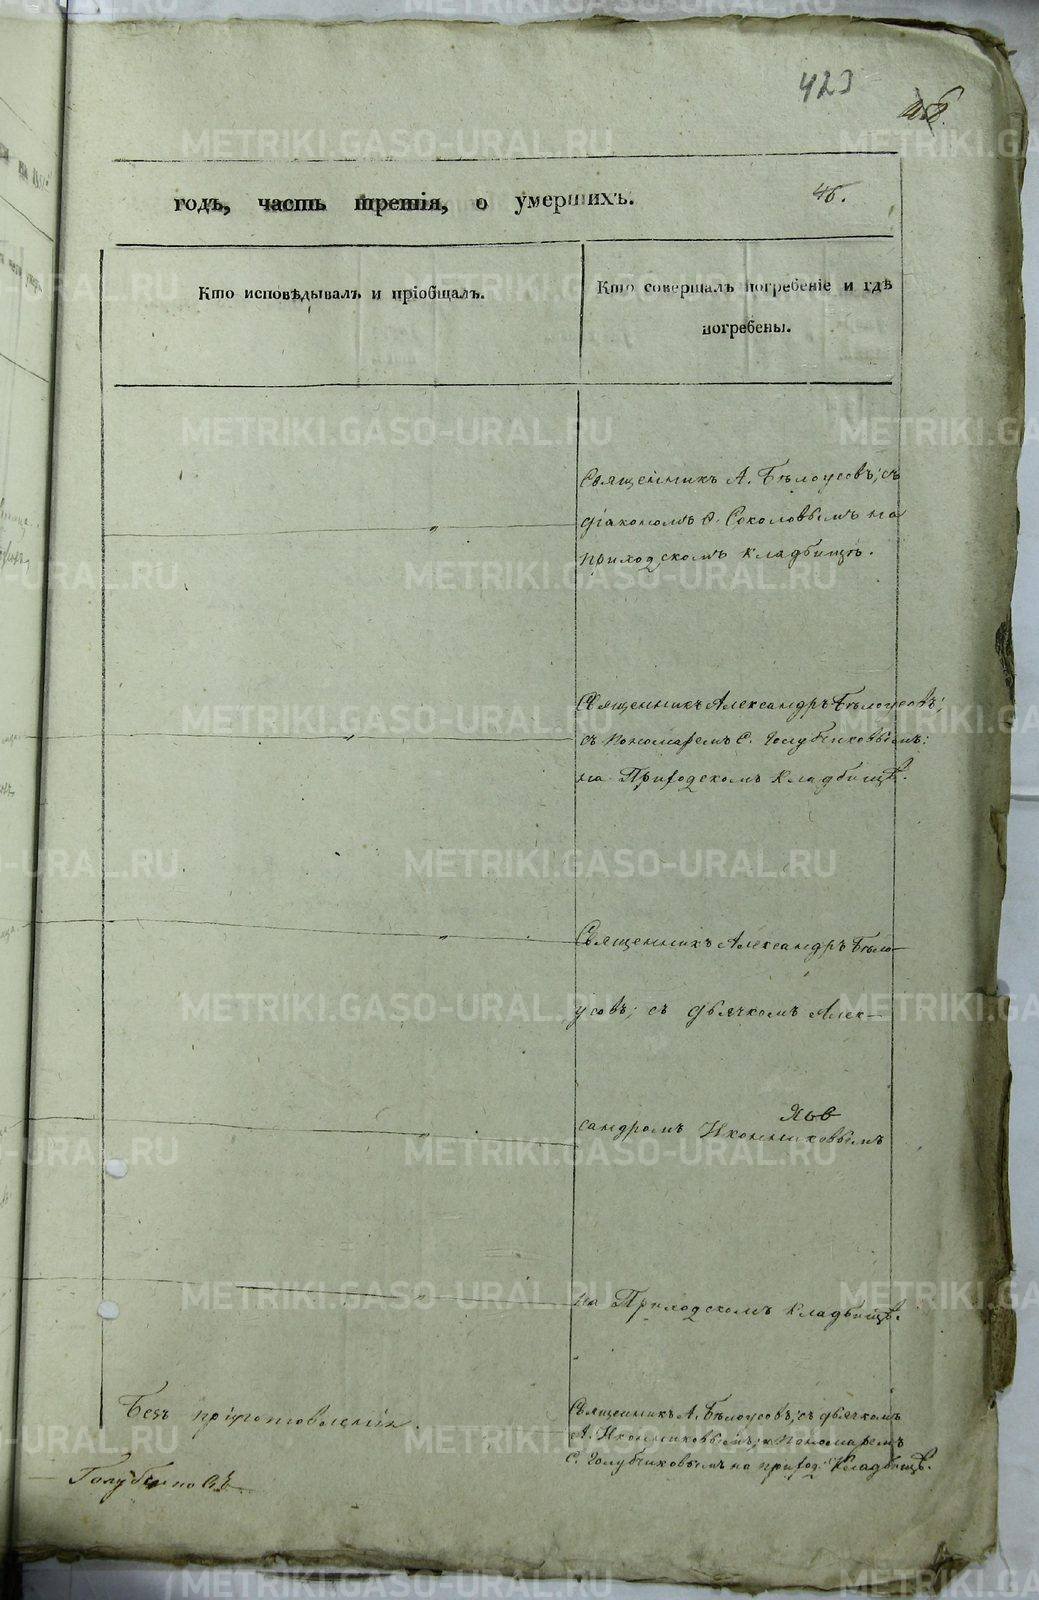 423
годъ, часть третія, о умершихъ.
46.
Кто исповѣдывалъ и пріобщалъ.
Кто совершалъ погребеніе и гдѣ
погребены.
Священникъ А. Бѣлоусовъ; съ
діакономъ С. Соколовымъ на
приходскомъ кладбищѣ.
Священникъ Александръ Бѣлоусовъ;
съ пономаремъ С. Голубчиковымъ:
на Приходскомъ Кладбищѣ.
Священникъ Александръ Бѣло-
усовъ; съ дьячкомъ Алек-
сандромъ Иконниковымъ
на Приходскомъ Кладбищѣ.
Безъ пріуготовленія.
Священникъ А. Бѣлоусовъ; съ дьячкомъ
А. Иконниковымъ; и пономаремъ
С. Голубчиковымъ на приход: Кладбищѣ.
METRIKI.GASO-URAL.RU